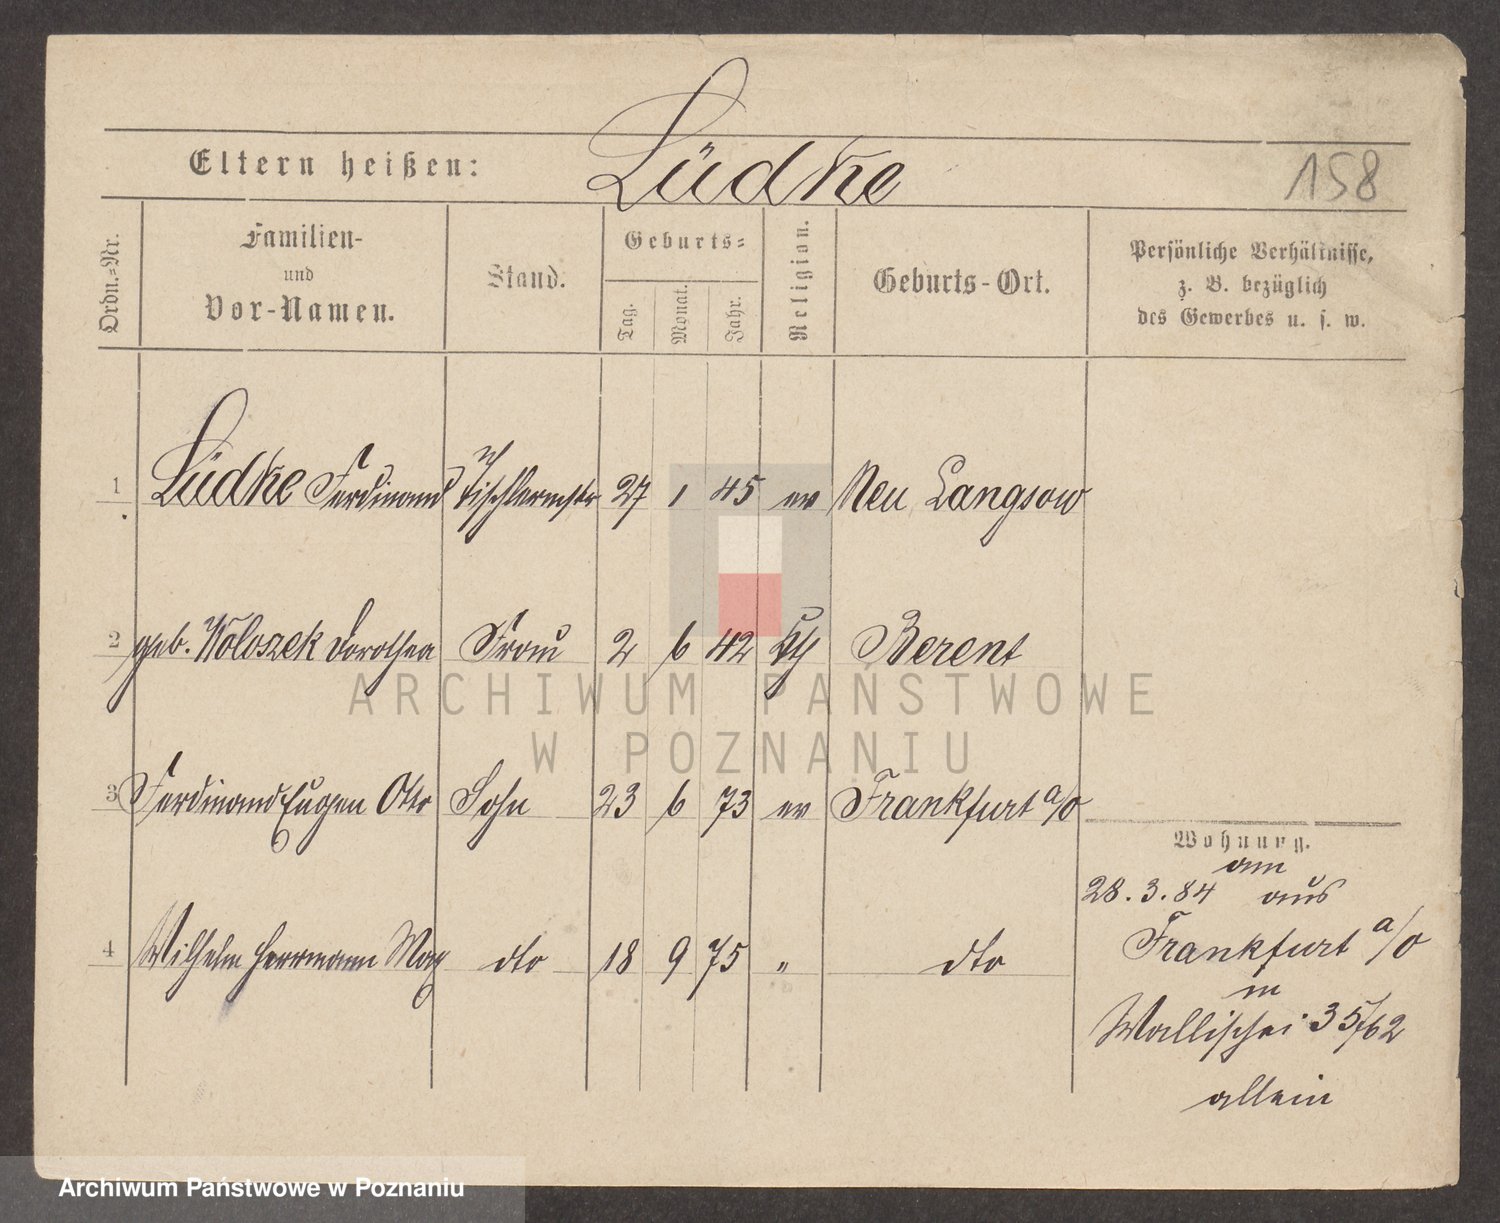 Eltern heißen: Lüdke 158
Ordn.=Nr.
Familien-
und
Vor-Namen.
Stand.
Geburts=
Tag.
Monat.
Jahr.
Religion.
Geburts-Ort.
Persönliche Verhältnisse,
z. B. bezüglich
des Gewerbes u. s. w.
1 Lüdke Ferdinand Tischlermstr 27 1 45 ev Neu Langsow
2 geb. Woloszek Dorothea Frau 2 6 42 kth Berent
3 Ferdinand Eugen Otto Sohn 23 6 73 ev Frankfurt a/o
4 Wilhelm Herrmann Max dto 18 9 75 " dto
Wohnung.
am
28.3.84 aus
Frankfurt a/o
in
Wallischei 35/62
allein
ARCHIWUM PAŃSTWOWE
W POZNANIU
Archiwum Państwowe w Poznaniu